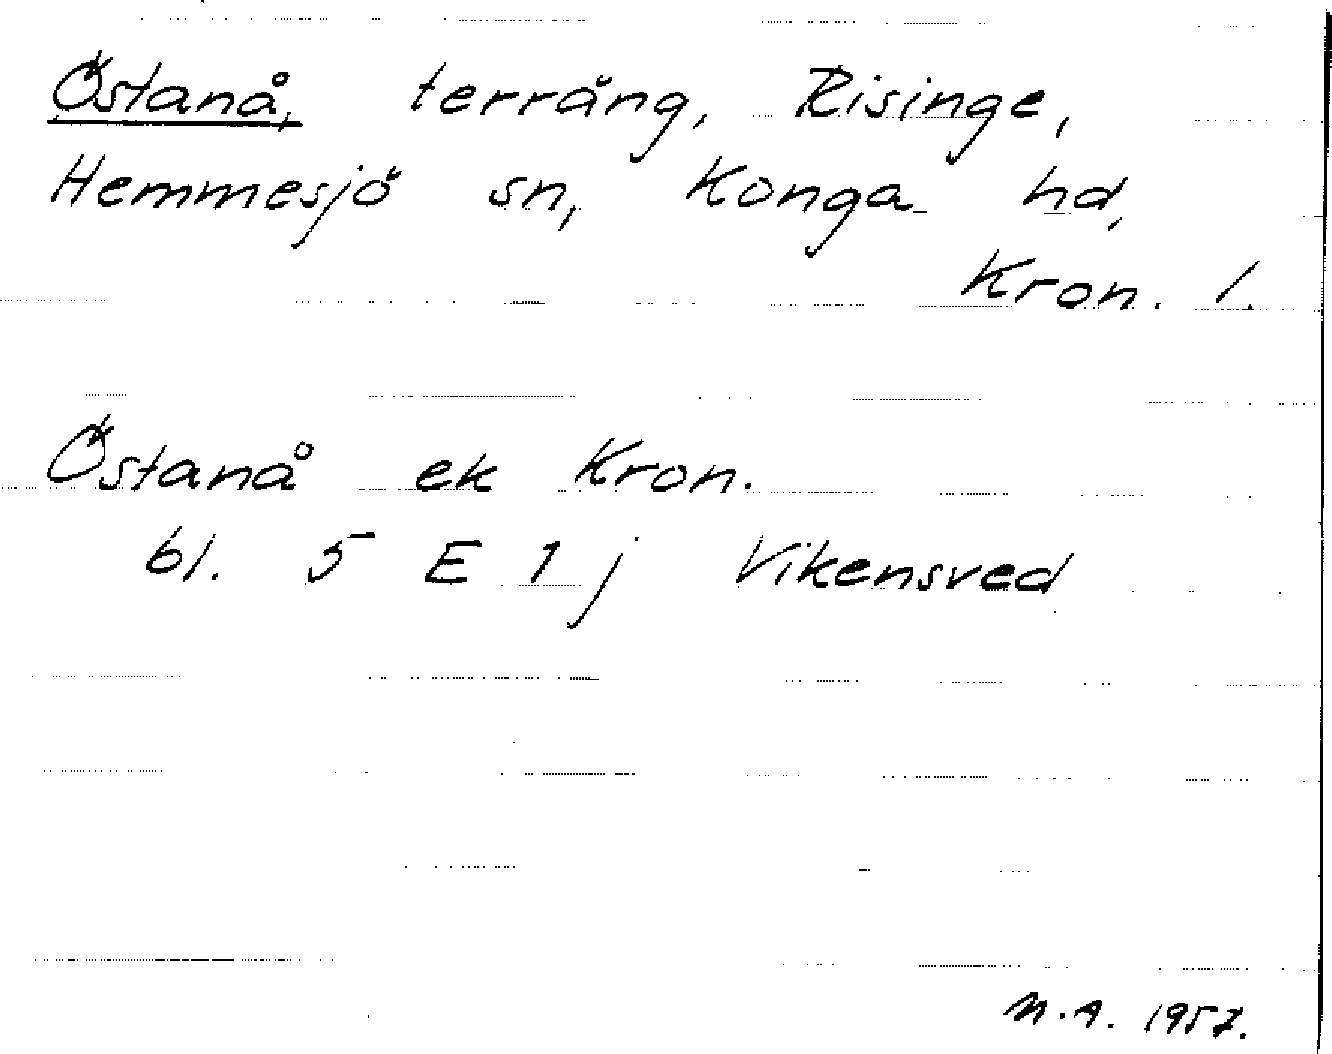 Östanå, terräng, Risinge,
Hemmesjö sn, Konga hd,
Kron. l.
Östanå ek Kron.
bl. 5 E 1 j Vikensved
M.A. 1957.